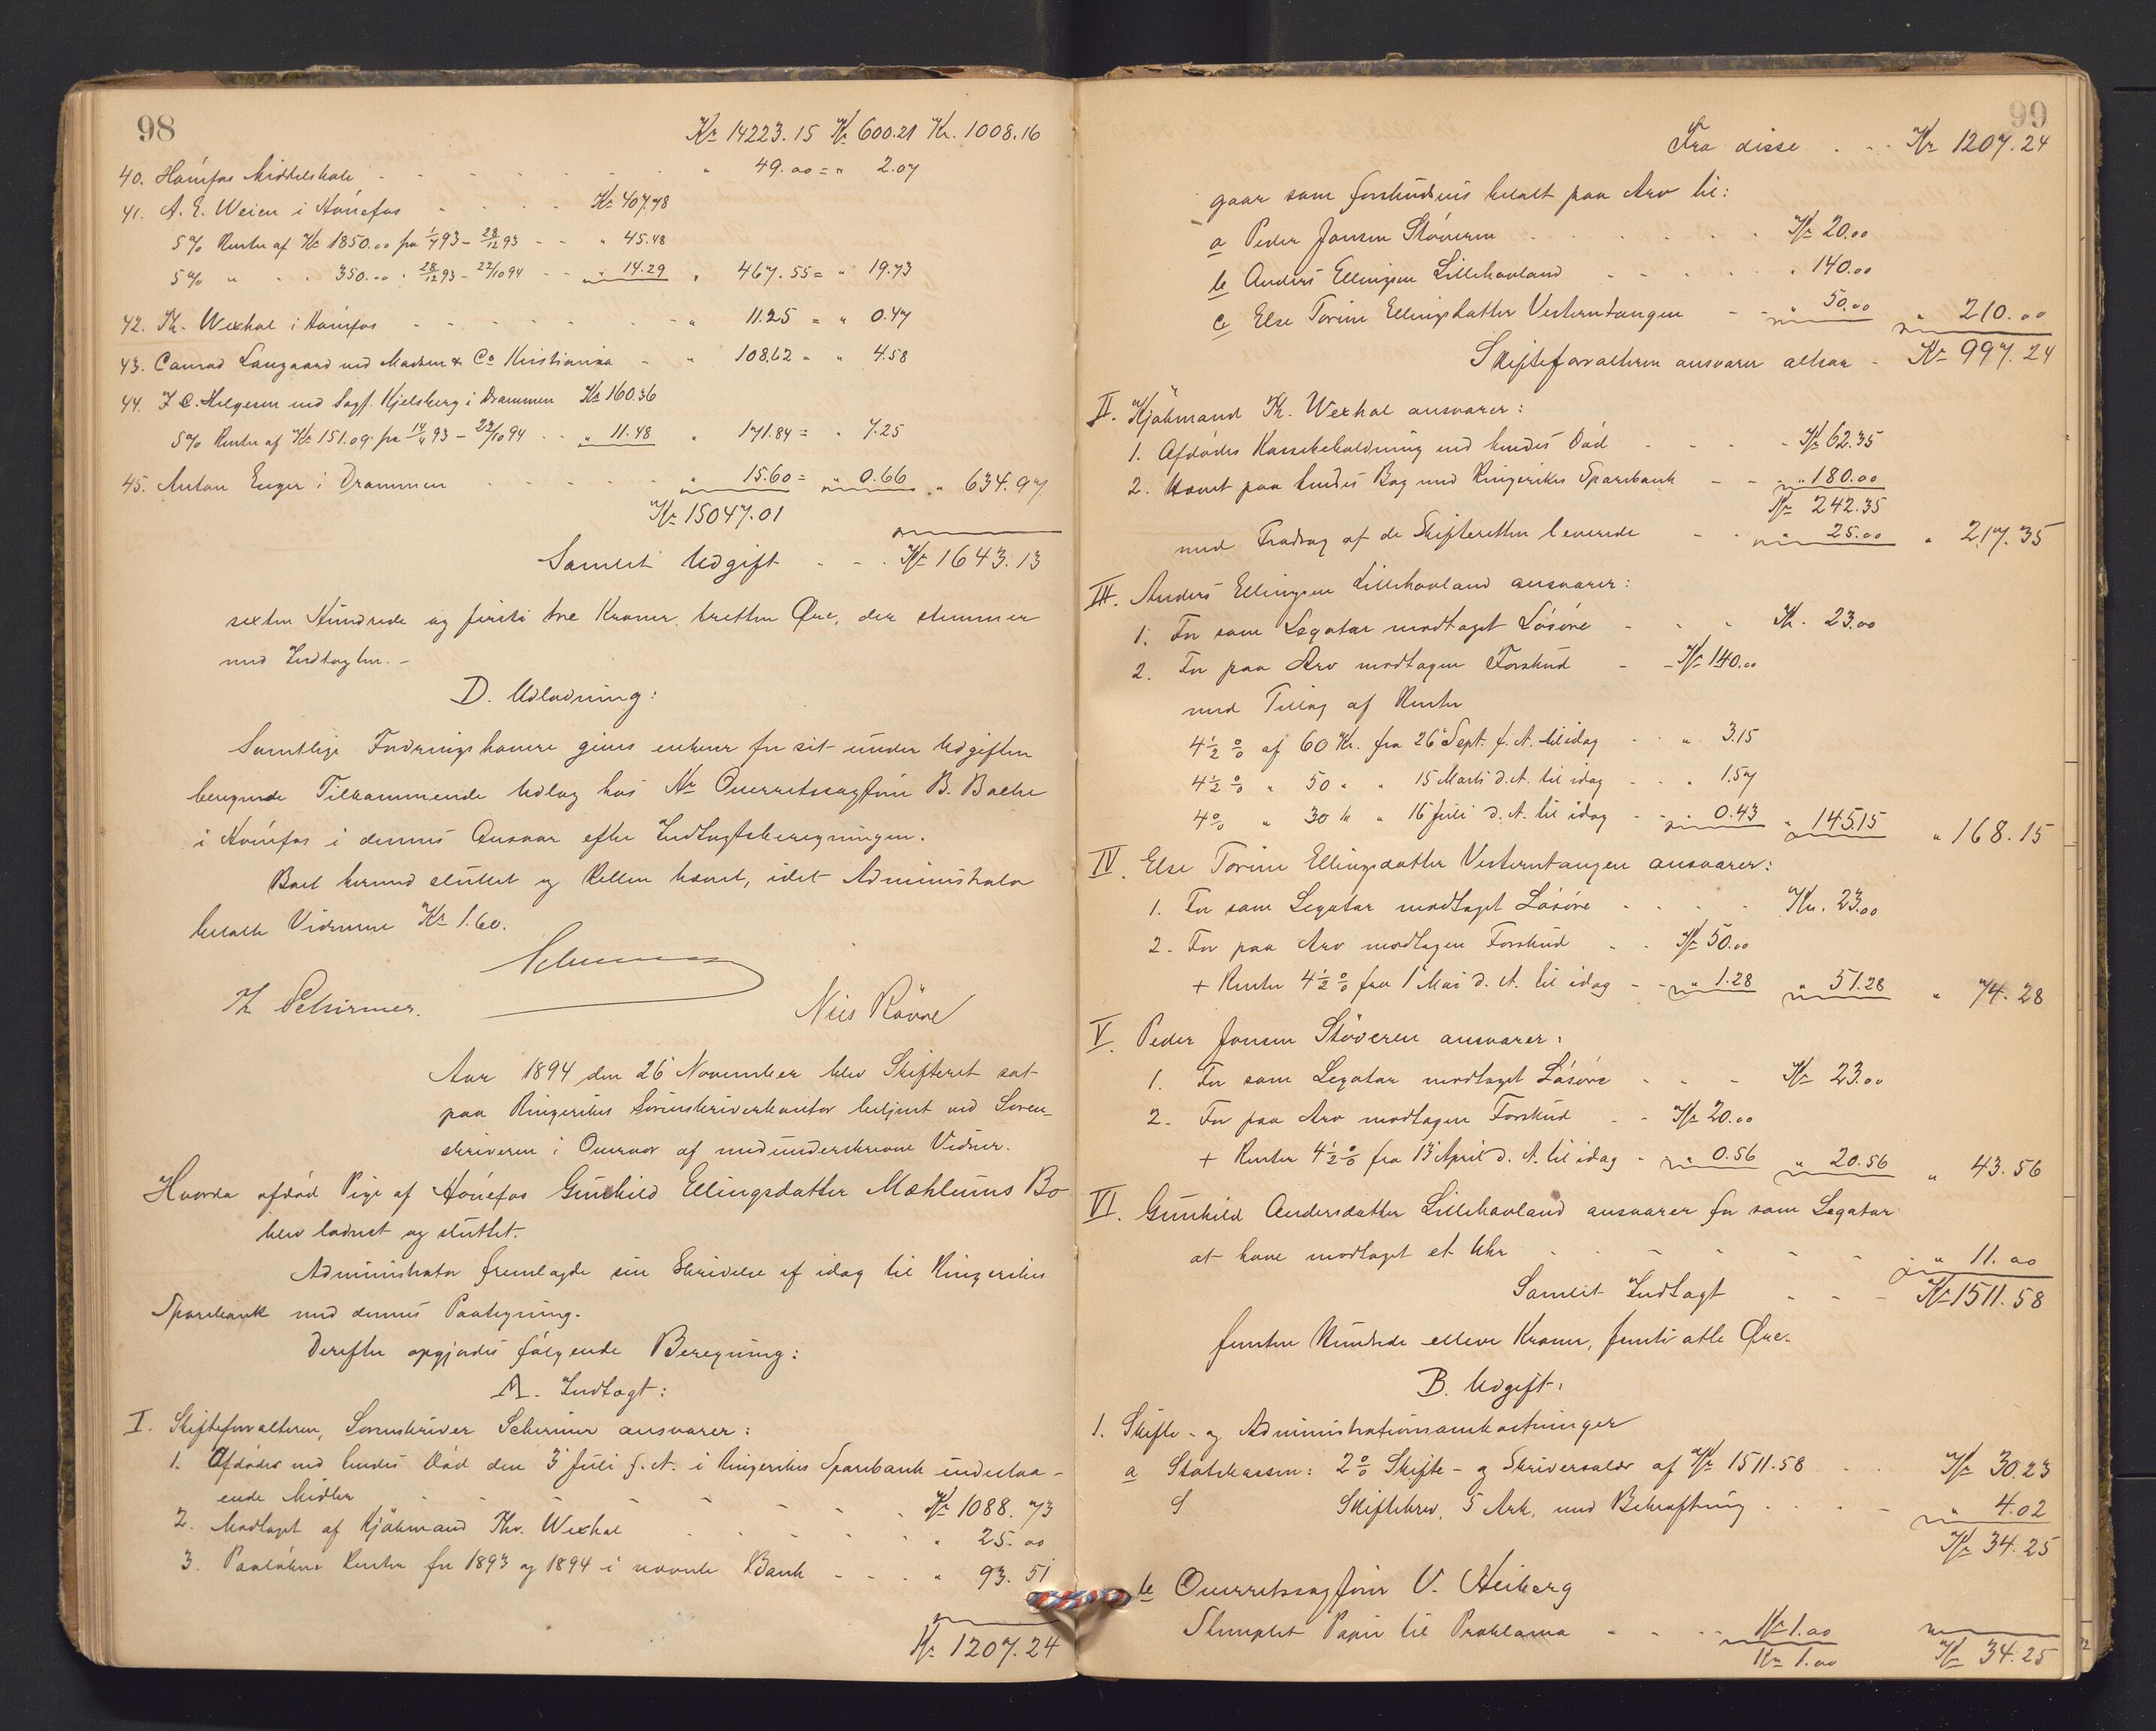 98
Kr. 14223.15 Kr. 600.21 Kr. 1008.16
40. Hønefos Middelskole - - - - - - " 49.00 = " 2.07
41. A. E. Weien i Hønefos - - - - Kr. 407.78
5% Renter af Kr. 1850.00 fra 1/7 93 - 28/12 93 - - " 45.48
5% " - - 350.00 " 28/12 93 - 22/10 94 - - " 14.29 " 467.55 = " 19.73
42. Th. Wexhal i Hønefos - - - - - - " 11.25 = " 0.47
43. Conrad Langaard ved Madsen & Co Kristiania - " 108.62 = " 4.58
44. J. C. Helgesen ved Sagf. Kjelsberg i Drammen Kr. 160.36
5% Renter af Kr. 151.09 fra 14/4 93 - 22/10 94 - - " 11.48 " 171.84 = " 7.25
45. Anton Enger i Drammen - - - - - - " 15.60 = " 0.66 " 634.97
Kr. 15047.01
Samlet Udgift - - . Kr. 1643.13
sexten Hundrede og firti tre Kroner, tretten Øre, der stemmer
med Indtægten. -
D. Udlodning:
Samtlige Fordringshavere gives enhver for sit under Udgiften
beregnede Tilkommende Udlæg hos Hr Overretssagfører B. Bache
i Hønefos i dennes Ansvar efter Indtægtsberegningen.
Boet hermed sluttet og Retten hævet, idet Administrator
betalte Vidnerne Kr. 1.60.
Schirmer
Th Schirmer.
Nils Rövne
Aar 1894 den 26 November blev Skifteret sat
paa Ringerikes Sorenskriverkontor betjent ved Soren-
skriveren i Overvær af medunderskrevne Vidner.
Hvorda afdød Pige af Hønefos Gunhild Ellingsdatter Mæhlums Bo
blev lodnet og sluttet.
Administrator fremlagde sin Skrivelse af idag til Ringerikes
Sparebank med dennes Paategning.
Derefter opgjordes følgende Beregning:
A. Indtægt:
I. Skifteforvalteren, Sorenskriver Schirmer ansvarer:
1. Afdødes ved hendes Død den 3 Juli f. A. i Ringerikes Sparebank indestaa-
ende Midler - - - - - - - Kr. 1088.73
2. Modtaget af Kjøbmand Th. Wexhal - - - - - " 25.00
3. Paaløbne Renter for 1893 og 1894 i nævnte Bank - - - " 93.51
Kr. 1207.24
99
Fra disse . - - Kr 1207.24
gaar som forskudsvis betalt paa Arv til:
a Peder Jonsen Støveren - - - - - - Kr 20.00
b Anders Ellingsen Lillehovland - - - - - " 140.00
c Else Torine Ellingsdatter Vesterntangen - - " 50.00 " 210.00
Skifteforvalteren ansvarer altsaa - Kr 997.24
II. Kjøbmand Th. Wexhal ansvarer:
1. Afdødes Kassebeholdning ved hendes Død - - - - Kr 62.35
2. Hævet paa hendes Bog med Ringerikes Sparebank - - " 180.00
Kr 242.35
med Fradrag af de Skifteretten leverede - - " 25.00 " 217.35
III. Anders Ellingsen Lillehovland ansvarer:
1. For som Legatar modtaget Løsøre - - - Kr. 23.00
2. For paa Arv modtagen Forskud - - Kr 140.00
med Tillæg af Renter
4 1/2 % af 60 Kr. fra 26 Sept. f. A. til idag - - " 3.15
4 1/2 % " 50 " " 15 Marts d. A. til idag - - " 1.57
4% " 30 " " 16 Juli d. A. til idag - - " 0.43 " 145.15 " 168.15
IV. Else Torine Ellingsdatter Vesterntangen ansvarer:
1. For som Legatar modtaget Løsøre - - - - Kr. 23.00
2. For paa Arv modtagen Forskud - - Kr 50.00
+ Renter 4 1/2 % fra 1 Mai d. A. til idag - - " 1.28 " 51.28 " 74.28
V. Peder Jonsen Støveren ansvarer:
1. For som Legatar modtaget Løsøre - - - Kr 23.00
2. For paa Arv modtagen Forskud - - Kr 20.00
+ Renter 4 1/2 % fra 13 April d. A. til idag - " 0.56 " 20.56 " 43.56
VI. Gunhild Andersdatter Lillehovland ansvarer for som Legatar
at have modtaget et Uhr - - - - - - " 11.00
Samlet Indtægt - - - Kr 1511.58
femten Hundrede elleve Kroner, femti otte Øre.
B. Udgift:
1. Skifte- og Administrationsomkostninger
a Statskassen: 2% Skifte- og Skriversalær af Kr 1511.58 - - Kr 30.23
S Skiftebrev, 5 Ark, med Bekræftning - - - - " 4.02
Kr 34.25
b Overretssagfører V. Heiberg
Stemplet Papir til Proklama - - - Kr 1.00
Kr 1.00 Kr 34.25